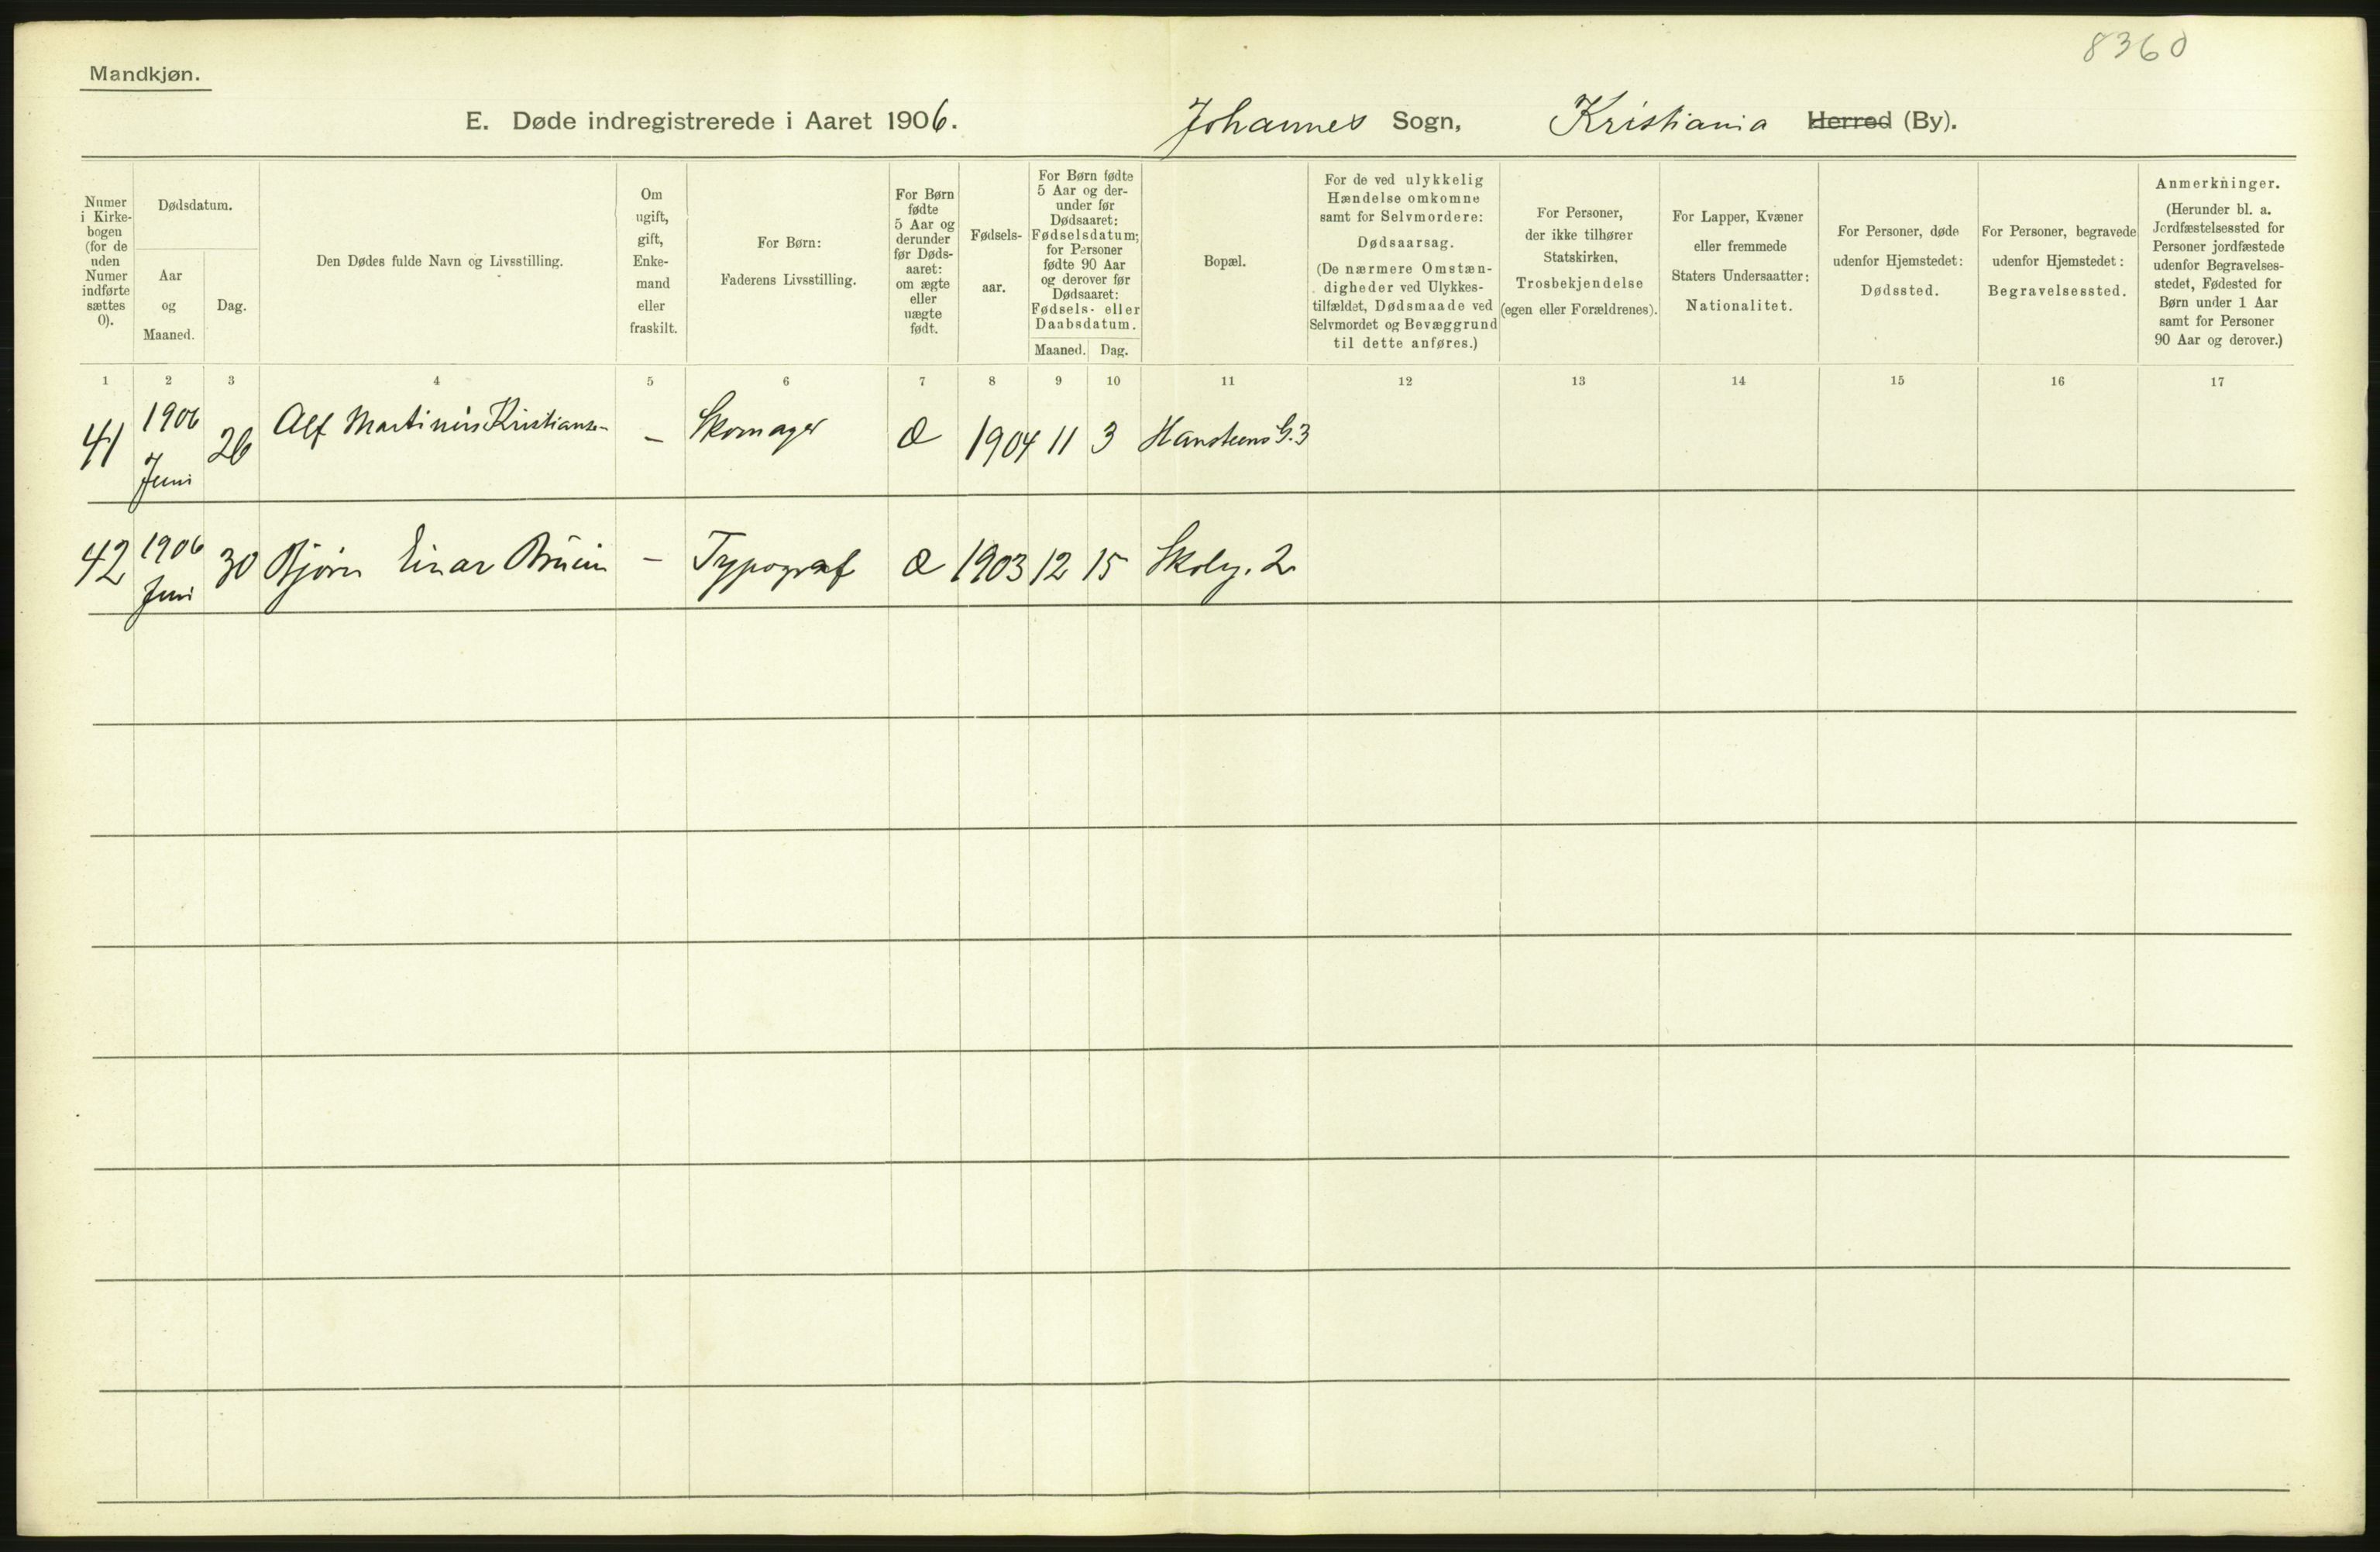 8360
Mandkjøn.
E. Døde indregistrerede i Aaret 1906.
Johannes Sogn, Kristiania Herred (By).
Numer i Kirke-bogen (for de uden Numer indførte sættes 0).
Dødsdatum.
Aar og Maaned.
Dag.
Den Dødes fulde Navn og Livsstilling.
Om ugift, gift, Enke-mand eller fraskilt.
For Børn: Faderens Livsstilling.
For Børn fødte 5 Aar og derunder før Døds-aaret: om ægte eller uægte født.
Fødsels-aar.
For Børn fødte 5 Aar og der-under før Dødsaaret: Fødselsdatum; for Personer fødte 90 Aar og derover før Dødsaaret: Fødsels- eller Daabsdatum.
Maaned. Dag.
Bopæl.
For de ved ulykkelig Hændelse omkomne samt for Selvmordere: Dødsaarsag. (De nærmere Omstæn-digheder ved Ulykkes-tilfældet, Dødsmaade ved Selvmordet og Bevæggrund til dette anføres.)
For Personer, der ikke tilhører Statskirken, Trosbekjendelse (egen eller Forældrenes).
For Lapper, Kvæner eller fremmede Staters Undersaatter: Nationalitet.
For Personer, døde udenfor Hjemstedet: Dødssted.
For Personer, begravede udenfor Hjemstedet: Begravelsessted.
Anmerkninger. (Herunder bl. a. Jordfæstelsessted for Personer jordfæstede udenfor Begravelses-stedet, Fødested for Børn under 1 Aar samt for Personer 90 Aar og derover.)
1 2 3 4 5 6 7 8 9 10 11 12 13 14 15 16 17
41 1906 Juni 26 Alf Martinius Kristiansen – Skomager Æ 1904 11 3 Hansteens G. 3
42 1906 Juni 30 Bjørn Einar – Typograf Æ 1903 12 15 Skolg. 2